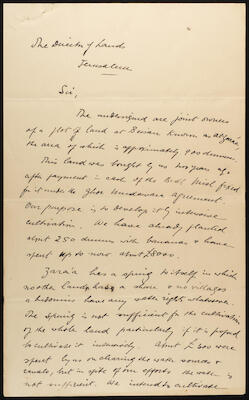 The Director of Lands
Jerusalem
Sir,
The undersigned are joint owners
of a plot of land at Beisan known as
the area of which is approximately 900 dunums.
This land was bought by us two years ago
after payment in cash of the Bedl Misl fixed
for it under the Ghor Mudawara Agreement.
Our purpose is to develop it by intensive
cultivation. We have already planted
about 250 dunums with bananas & have
spent up to now about £5000.
Zara'a has a spring to itself in which
no other land has a share & no villages
or bedouins have any water right whatsoever.
The spring is not sufficient for the cultivation
of the whole land particularly if it is proposed
to cultivate it intensively. About £300 were
spent by us on clearing the water sources &
canals, but in spite of our efforts the water is
not sufficient. We intend to cultivate